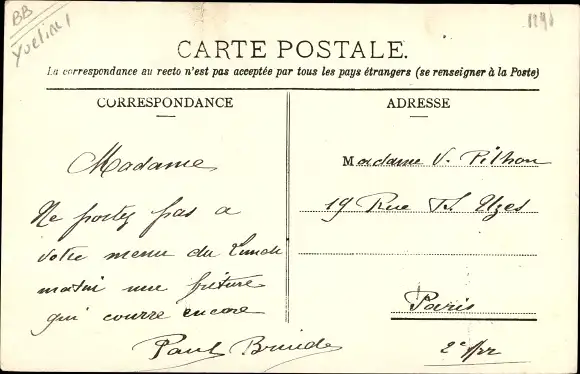 BB
Yveline
CARTE POSTALE.
La correspondance au recto n'est pas acceptée par tous les pays étrangers (se renseigner à la Poste)
CORRESPONDANCE
ADRESSE
Madame
Ne portez pas a
votre menu du Lundi
matin une friture
qui courre encore
Paul
Madame V. Pithon
19 Rue Uzes
Paris